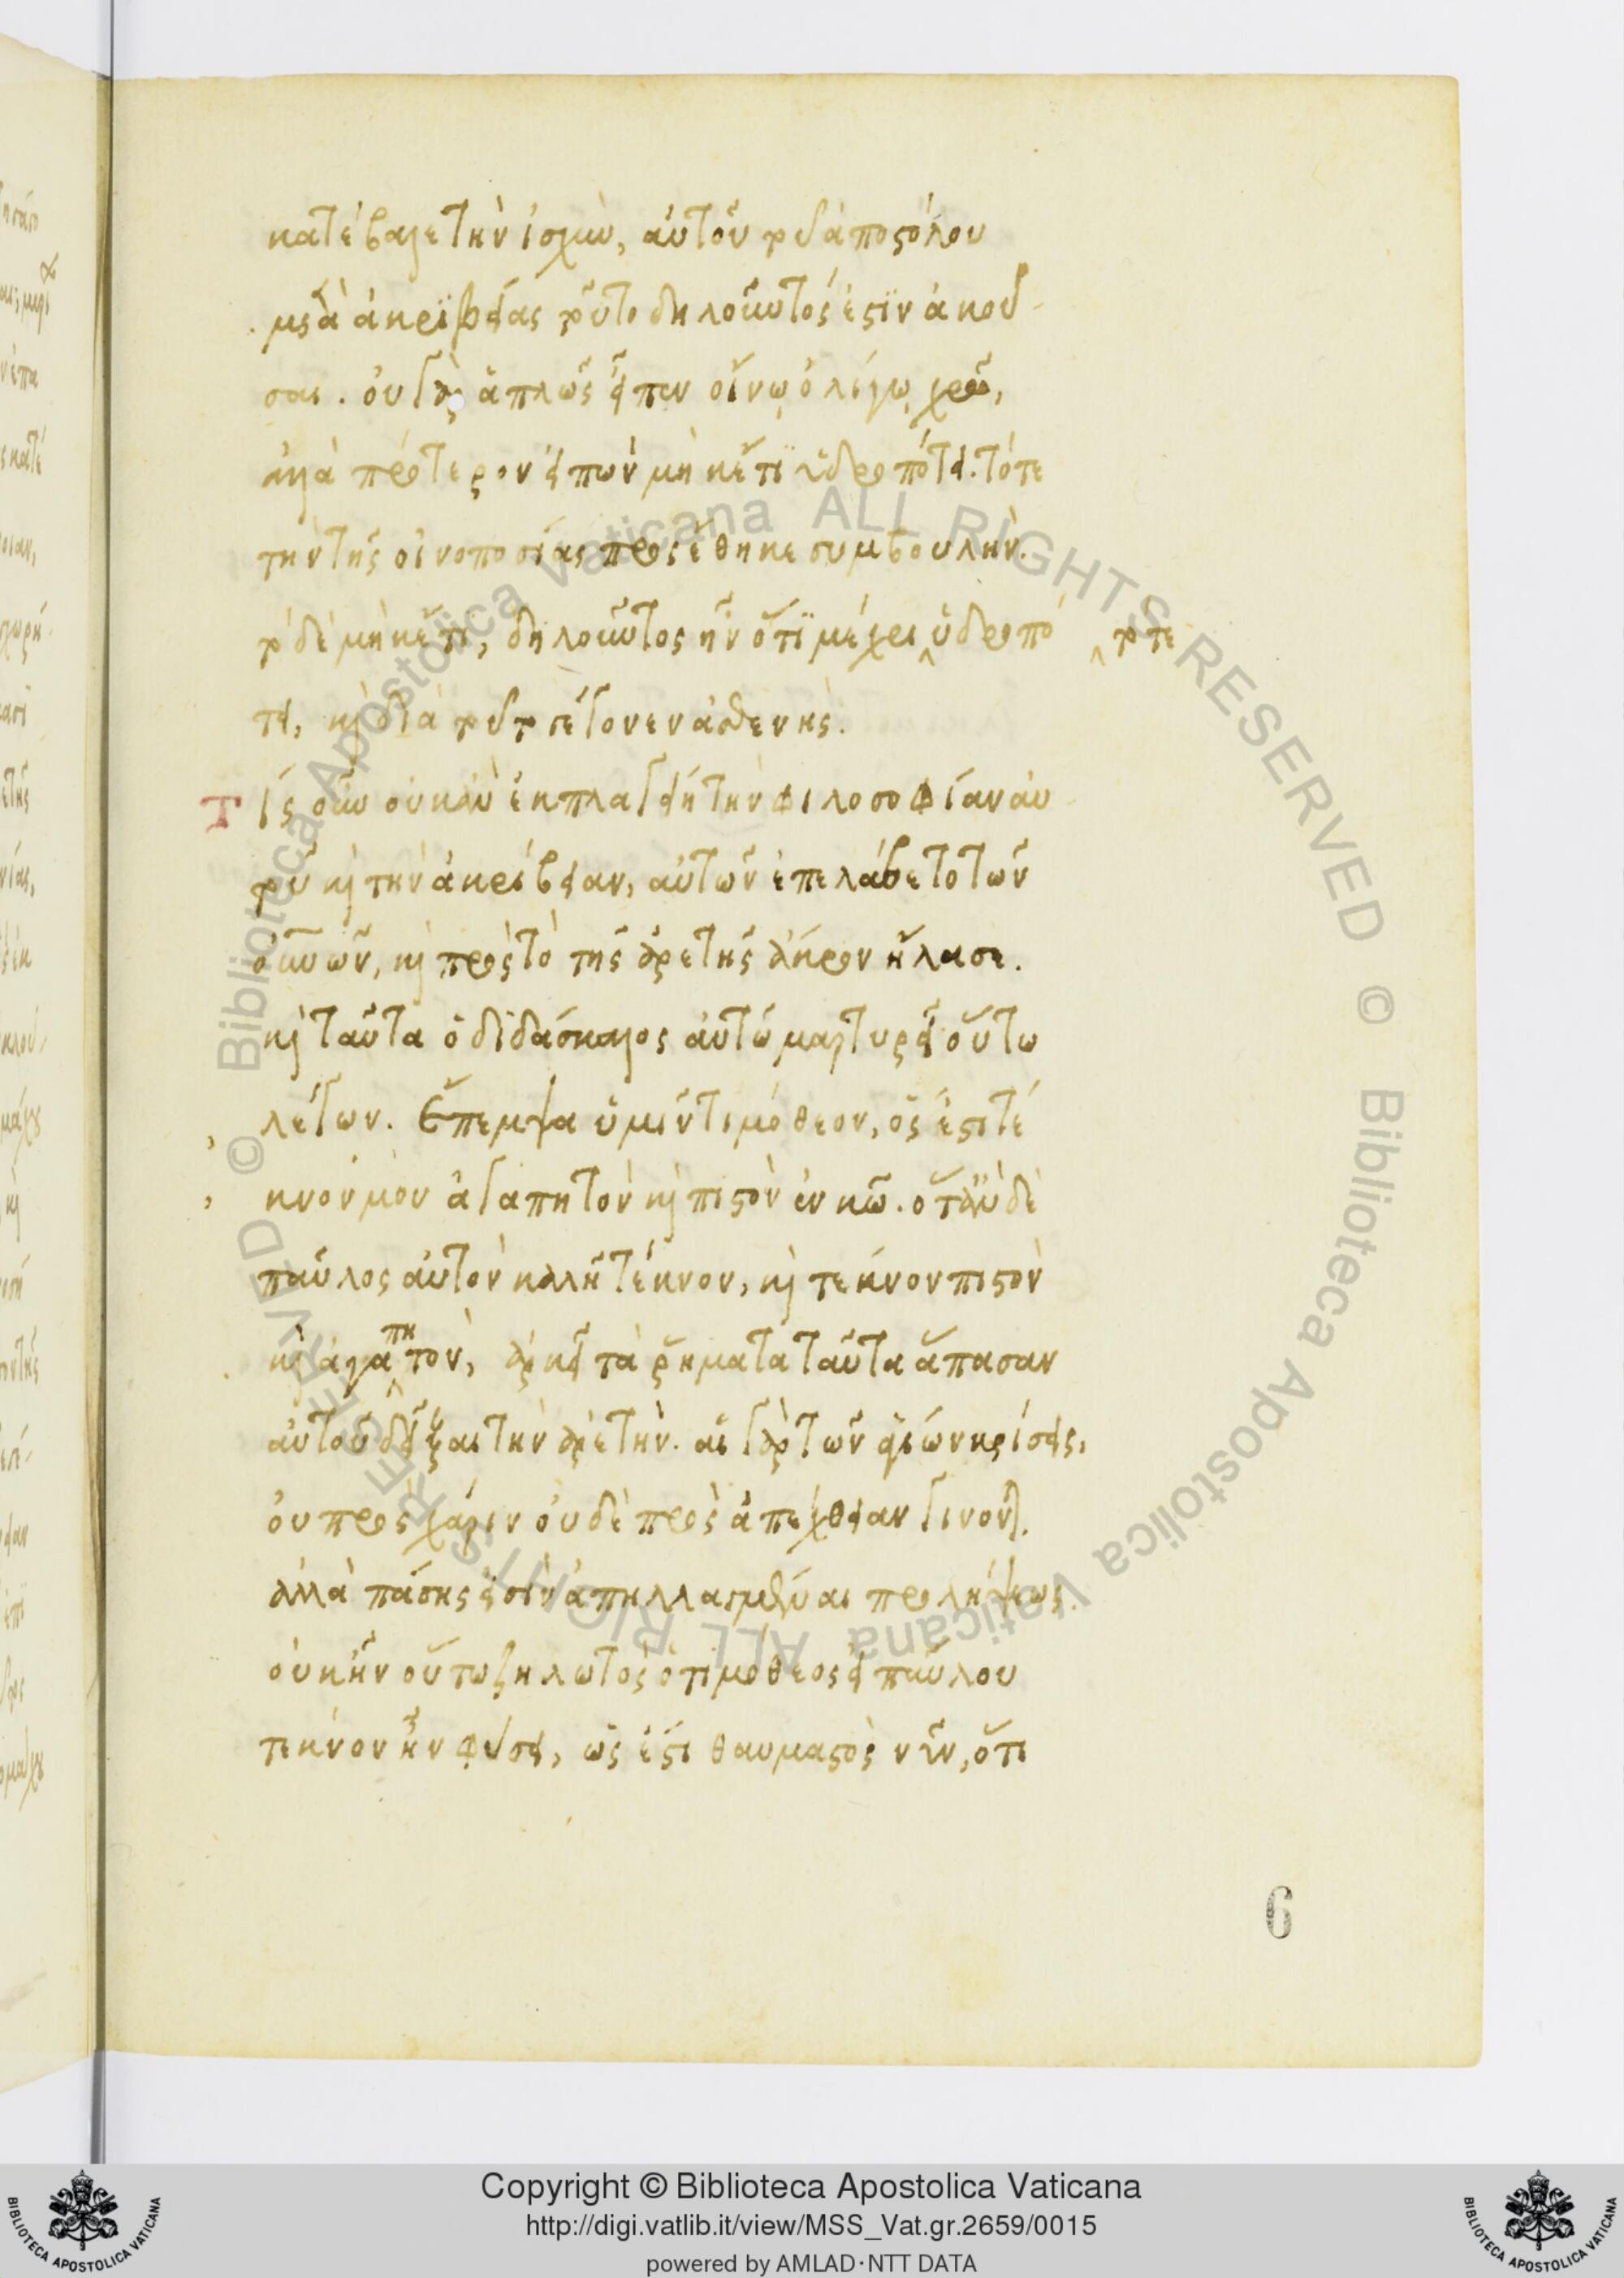 κατέβαλε τὴν ἰσχὺν, αὐτοῦ τοῦ ἀποστόλου
μετὰ ἀκριβείας τοῦτο δηλοῦντός ἐστὶν ἀκοῦ
σαι. οὐ γὰρ ἁπλῶς εἶπεν οἴνῳ ὀλίγῳ χρῶ,
ἀλλὰ πρότερον εἰπὼν μηκέτι ὑδροπότει. τότε
τὴν τῆς οἰνοποσίας προσέθηκε συμβουλήν.
τὸ δὲ μηκέτι, δηλοῦντος ἦν ὅτι μέχρι ὑδροπό
τότε
τει, καὶ διὰ τοῦτο γέγονεν ἀσθενής.
Τίς οὖν οὐκ ἂν ἐκπλαγείη τὴν φιλοσοφίαν αὐ
τοῦ καὶ τὴν ἀκρίβειαν, αὐτῶν ἐπελάβετο τῶν
οὐνῶν, καὶ πρὸς τὸ τῆς ἀρετῆς ἄκρον ἤλασε.
καὶ ταῦτα ὁ διδάσκαλος αὐτῷ μαρτυρεῖ οὕτω
λέγων. Ἔπεμψα ὑμῖν τιμόθεον, ὅς ἐστι τέ
κνον μου ἀγαπητὸν καὶ πιστὸν ἐν κω. ὅταν δὲ
παῦλος αὐτὸν καλῆ τέκνον, καὶ τέκνον πιστὸν
καὶ ἀγαπητὸν, ἀρκεῖ τὰ ῥήματα ταῦτα ἅπασαν
αὐτοῦ δεῖξαι τὴν ἀρετήν. αἱ γὰρ τῶν ἁγίων κρίσεις,
οὐ πρὸς χάριν οὐδὲ πρὸς ἀπέχθειαν γίνονται.
ἀλλὰ πάσης εἰσὶν ἀπηλλαγμέναι προλήψεως.
οὐκ ἦν οὕτω ζηλωτὸς ὁ τιμόθεος εἰ παύλου
τέκνον ἦν φύσει, ὡς ἔστι θαυμαστὸς νῦν, ὅτι
6
Copyright © Biblioteca Apostolica Vaticana
http://digi.vatlib.it/view/MSS_Vat.gr.2659/0015
powered by AMLAD·NTT DATA
Biblioteca Apostolica Vaticana ALL RIGHTS RESERVED ©
Biblioteca Apostolica Vaticana ALL RIGHTS RESERVED ©
BIBLIOTECA APOSTOLICA VATICANA
BIBLIOTECA APOSTOLICA VATICANA